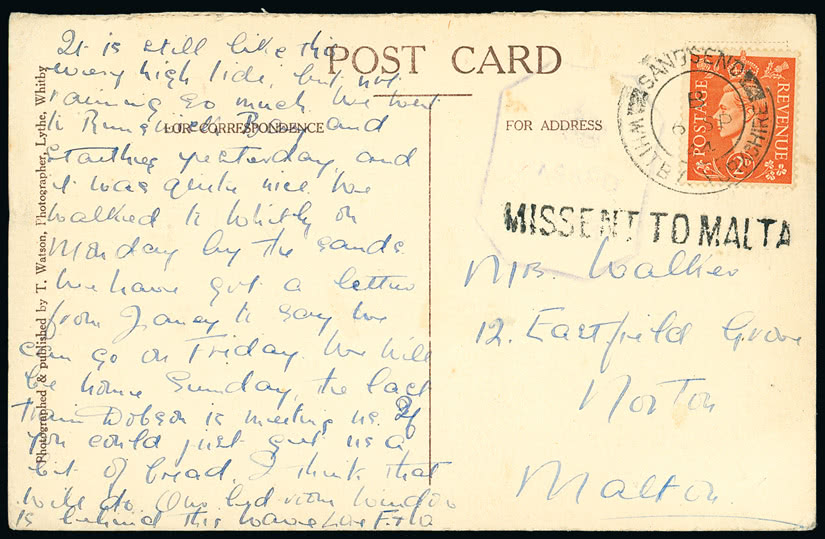 POST CARD
FOR CORRESPONDENCE
FOR ADDRESS
Photographed & published by T. Watson, Photographer, Lythe, Whitby
It is still like this
every high tide, but not
raining so much. We went
to Runswick Bay and
Staithes yesterday and
it was quite nice. We
walked to Whitby on
Monday by the sands.
We have got a letter
from Janey to say we
can go on Friday. We will
be home Sunday, the last
train Dobson is meeting us. If
you could just get us a
bit of bread, I think that
will do. Our bed room window
is behind this wave Love
SANDSEND
WHITBY
POSTAGE
REVENUE
2D
MISSENT TO MALTA
Walker
12. Eastfield Grove
Norton
Malton